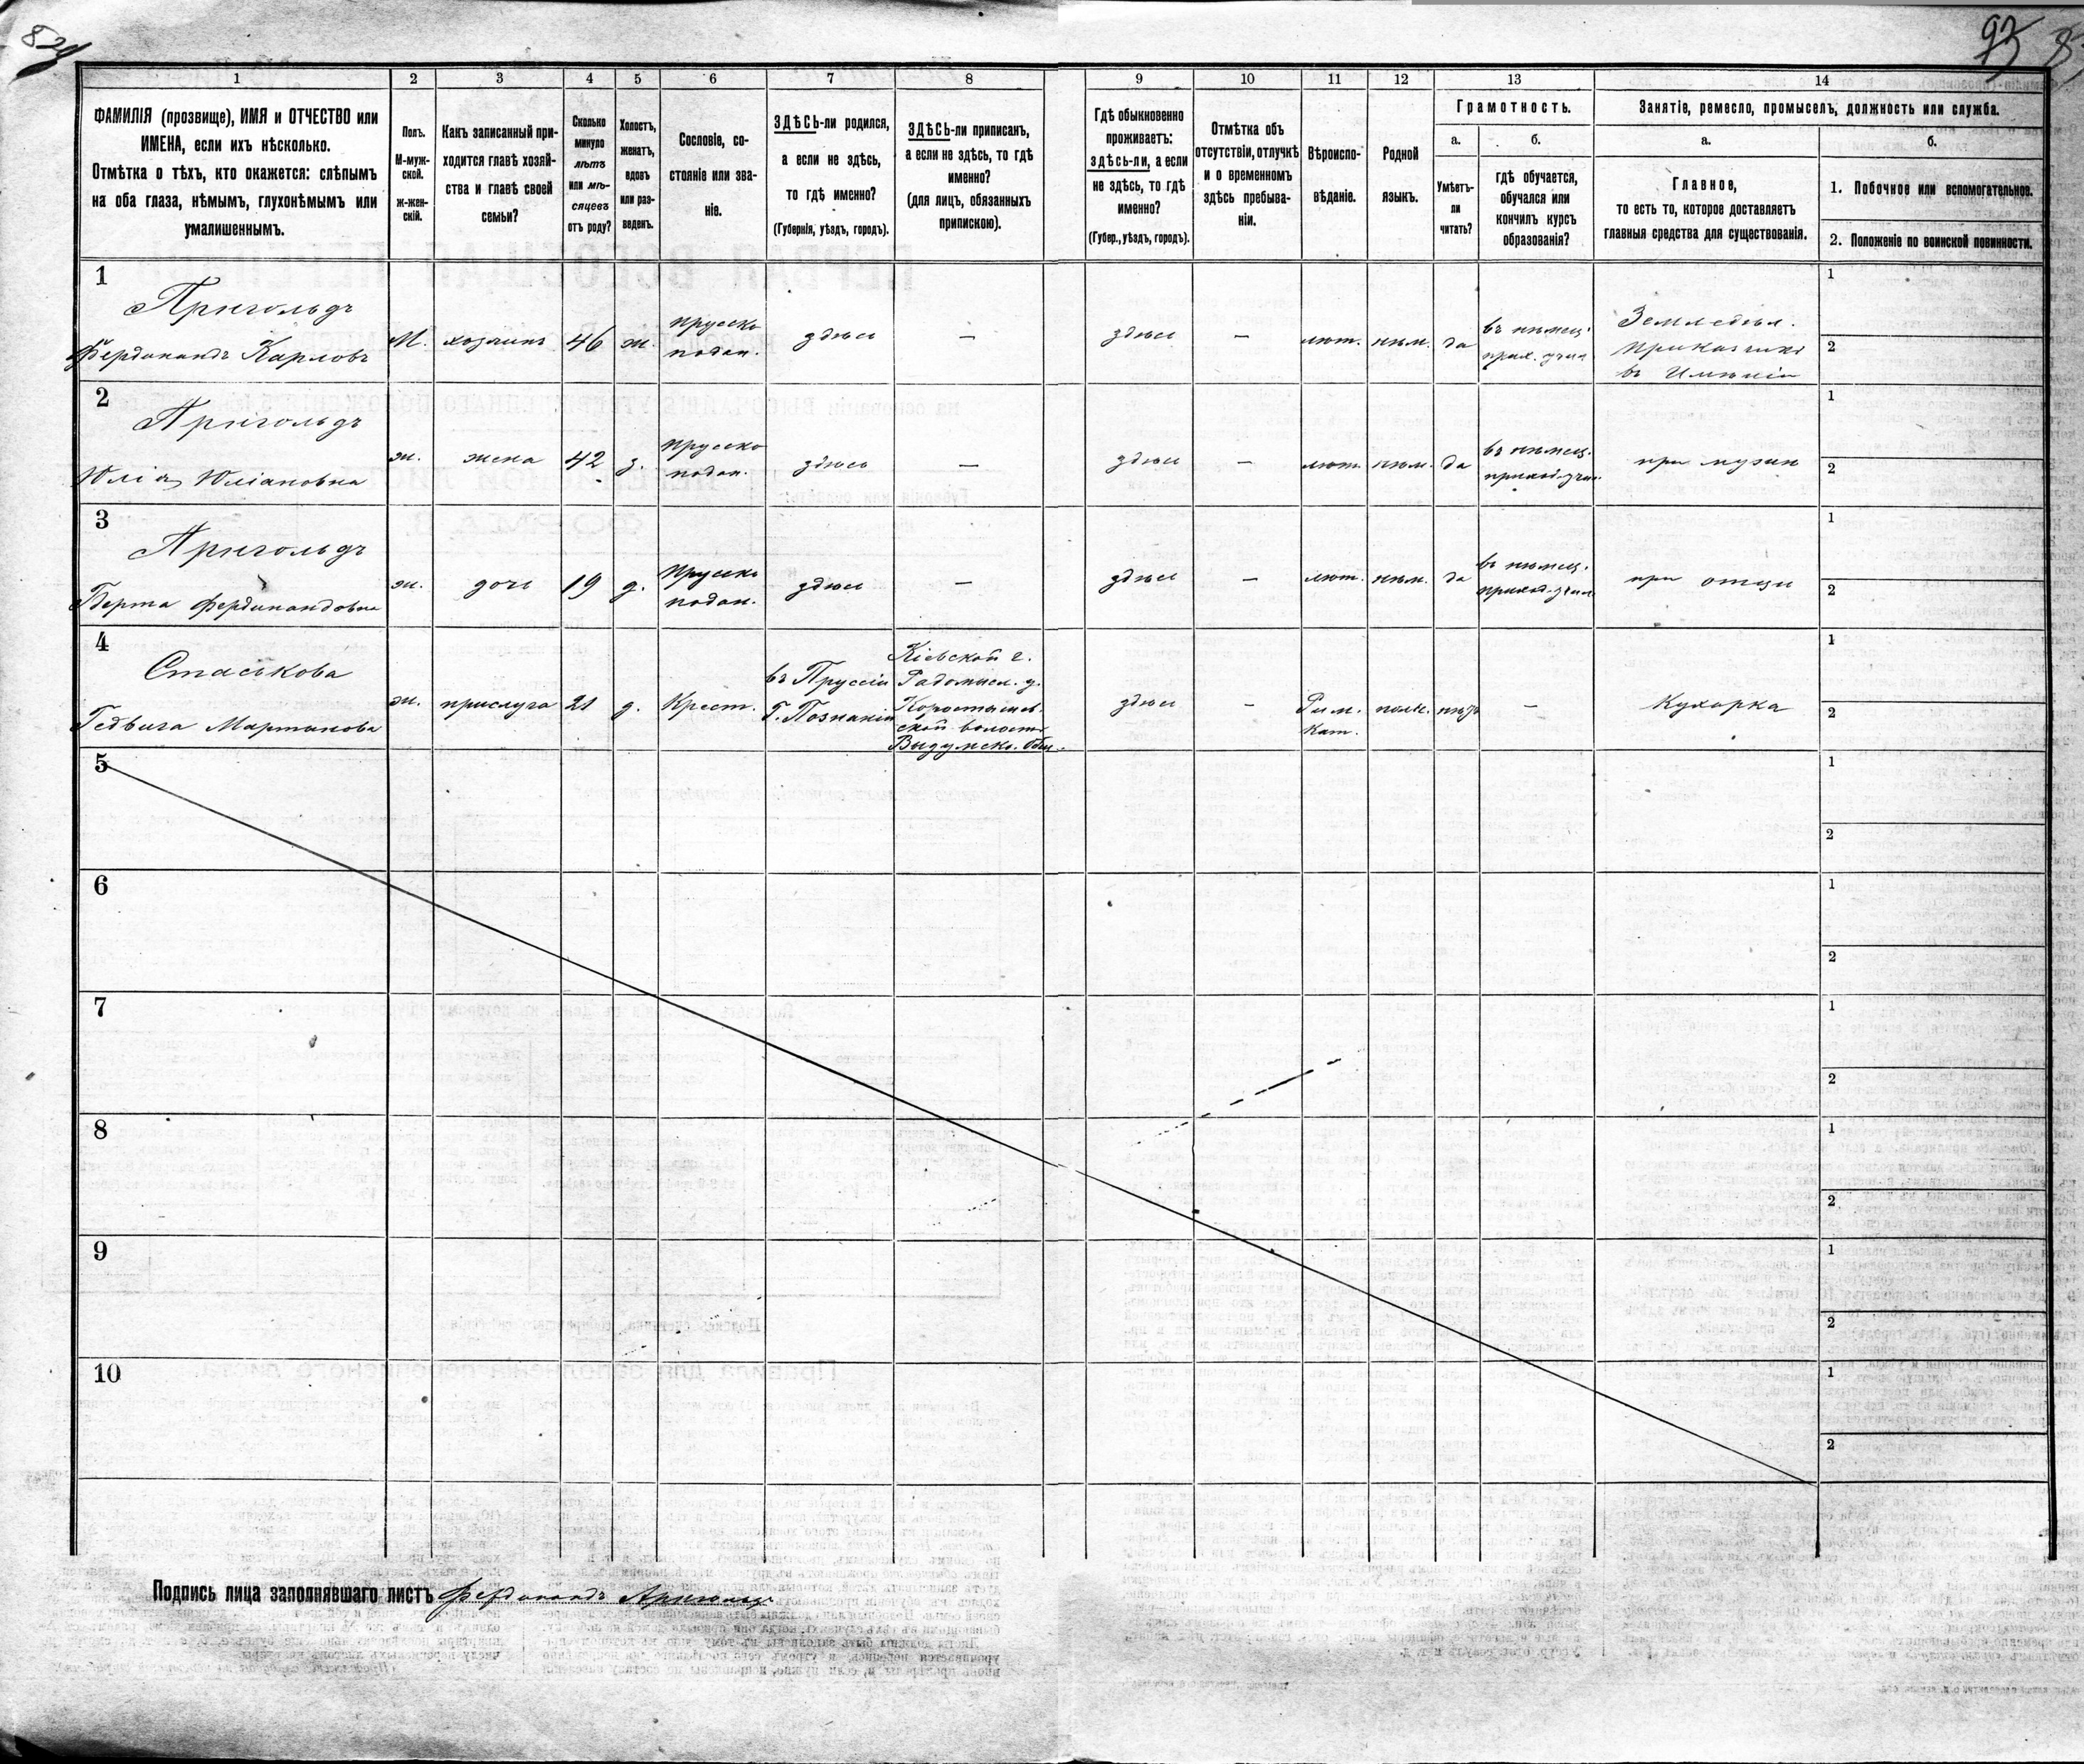 82
93
1 2 3 4 5 6 7 8 9 10 11 12 13 14
ФАМИЛІЯ (прозвище), ИМЯ и ОТЧЕСТВО или
ИМЕНА, если ихъ нѣсколько.
Отмѣтка о тѣхъ, кто окажется: слѣпымъ
на оба глаза, нѣмымъ, глухонѣмымъ или
умалишеннымъ.
Полъ.
М-муж-
ской.
ж-жен-
скій.
Какъ записанный при-
ходится главѣ хозяй-
ства и главѣ своей
семьи?
Сколько
минуло
лѣтъ
или мѣ-
сяцевъ
отъ роду?
Холостъ,
женатъ,
вдовъ
или раз-
веденъ.
Сословіе, со-
стояніе или зва-
ніе.
ЗДѢСЬ-ли родился,
а если не здѣсь,
то гдѣ именно?
(Губернія, уѣздъ, городъ).
ЗДѢСЬ-ли приписанъ,
а если не здѣсь, то гдѣ
именно?
(для лицъ, обязанныхъ
припискою).
Гдѣ обыкновенно
проживаетъ:
здѣсь-ли, а если
не здѣсь, то гдѣ
именно?
(Губер., уѣздъ, городъ).
Отмѣтка объ
отсутствіи, отлучкѣ
и о временномъ
здѣсь пребыва-
ніи.
Вѣроиспо-
вѣданіе.
Родной
языкъ.
Грамотность.
а.
Умѣетъ-
ли
читать?
б.
гдѣ обучается,
обучался или
кончилъ курсъ
образованія?
Занятіе, ремесло, промыселъ, должность или служба.
а.
Главное,
то есть то, которое доставляетъ
главныя средства для существованія.
б.
1. Побочное или вспомогательное.
2. Положеніе по воинской повинности.
1
Арнгольдъ
Фердинандъ Карловъ
М.
хозяинъ
46
ж.
прусско
подан.
здѣсь
—
здѣсь
—
лют.
нѣм.
да
въ нѣмец.
прих. учил
Земледѣл.
Приказчикъ
въ Имѣніи
1
2
2
Арнгольдъ
Юлія Юліановна
ж.
жена
42
з.
прусско
подан.
здѣсь
—
здѣсь
—
лют.
нѣм.
да
въ нѣмец.
приход. учил.
при мужи
1
2
3
Арнгольдъ
Берта Фердинандовна
ж.
дочь
19
д.
Прусско
подан.
здѣсь
—
здѣсь
—
лют.
нѣм.
да
въ нѣмец.
приход. учил
при отцы
1
2
4
Стаськова
Гедвига Мартинова
ж.
прислуга
21
д.
Крест.
въ Пруссіи
Г. Познаніи
Кіевской г.
Радомысл. у.
Коростышев-
ской волости
Выдумско. Общ.
здѣсь
—
Рим.
Кат.
польс.
нѣтъ
—
Кухарка
1
2
5
1
2
6
1
2
7
1
2
8
1
2
9
1
2
10
1
2
Подпись лица заполнявшаго листъ Фердинандъ Арнгольдъ